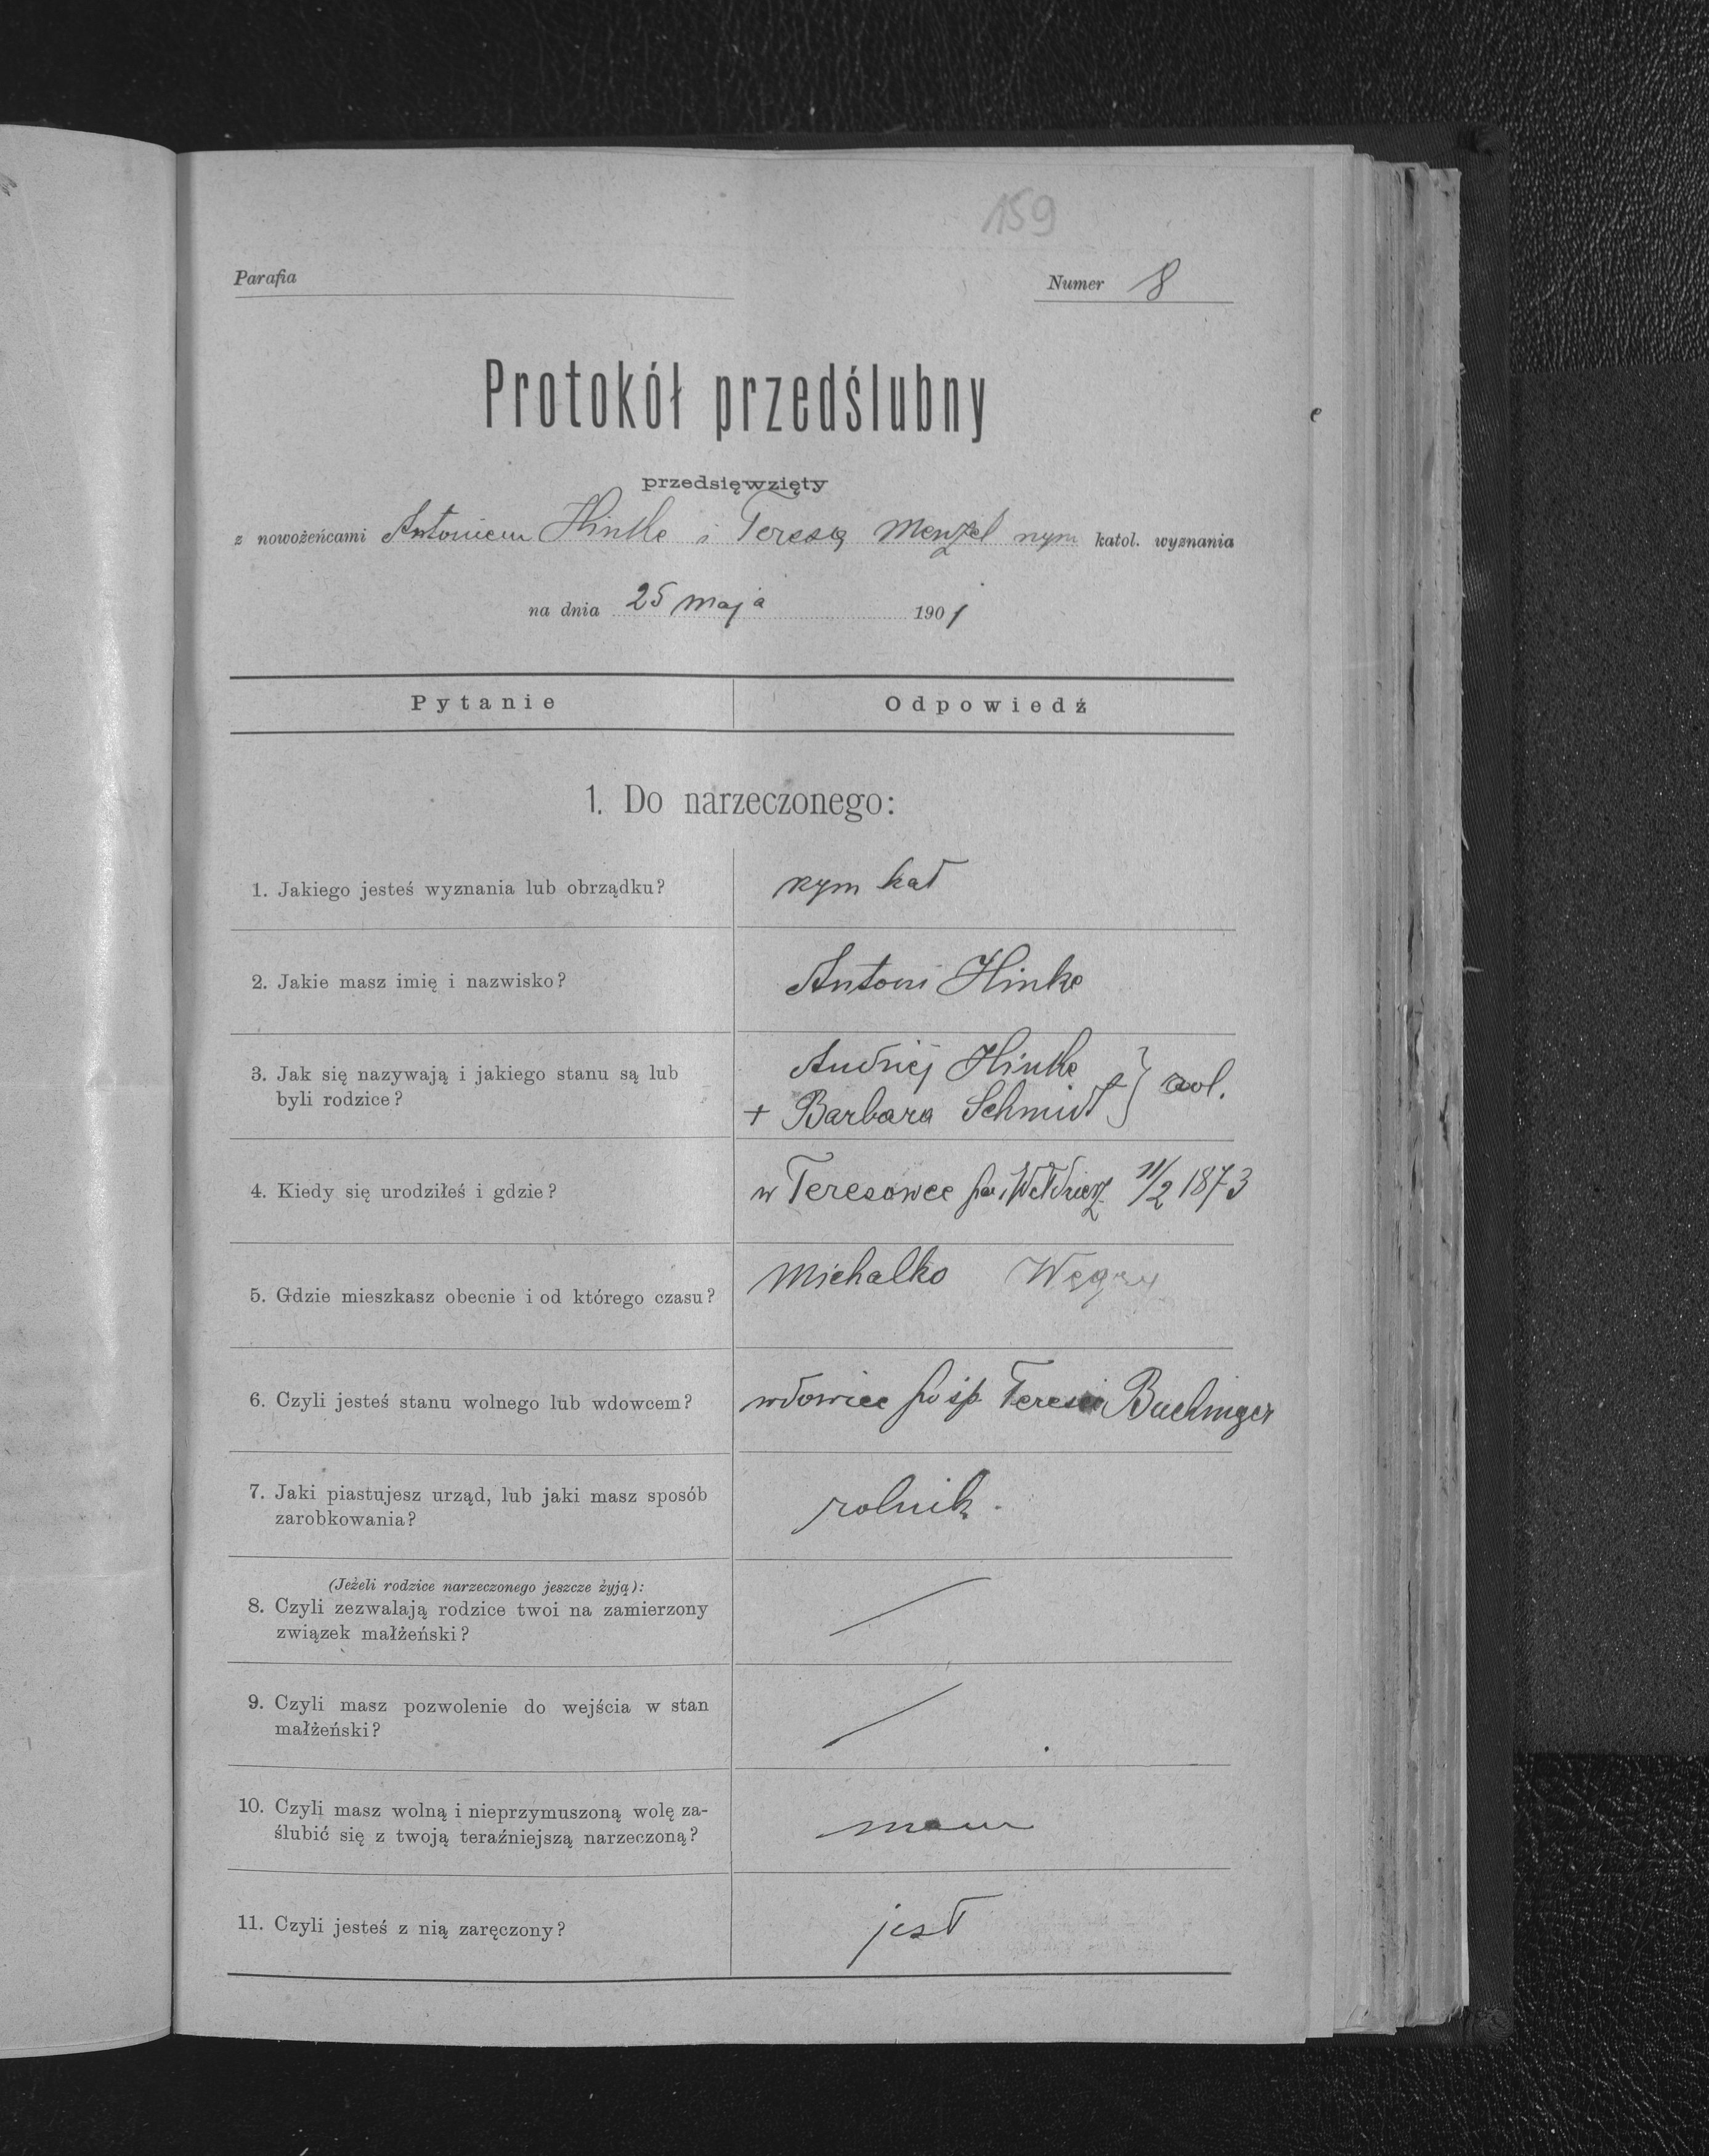 159
Parafia
Numer 8
Protokół przedślubny
przedsięwzięty
z nowożeńcami Antoniem Hinke i Teresą Menzel rzym katol. wyznania
na dnia 25 maja 1901
Pytanie Odpowiedź
1. Do narzeczonego:
1. Jakiego jesteś wyznania lub obrządku? rzym kat
2. Jakie masz imię i nazwisko? Antoni Hinke
3. Jak się nazywają i jakiego stanu są lub
byli rodzice?
Andrzej Hinke
+ Barbara Schmidt } rol.
4. Kiedy się urodziłeś i gdzie? w Teresowce par. Wełdzirz 11/2 1873
5. Gdzie mieszkasz obecnie i od którego czasu? Michalko Węgry
6. Czyli jesteś stanu wolnego lub wdowcem? wdowiec po śp. Teresie Buchinger
7. Jaki piastujesz urząd, lub jaki masz sposób
zarobkowania?
rolnik.
(Jeżeli rodzice narzeczonego jeszcze żyją):
8. Czyli zezwalają rodzice twoi na zamierzony
związek małżeński?
9. Czyli masz pozwolenie do wejścia w stan
małżeński?
10. Czyli masz wolną i nieprzymuszoną wolę za-
ślubić się z twoją teraźniejszą narzeczoną?
mam
11. Czyli jesteś z nią zaręczony? jest